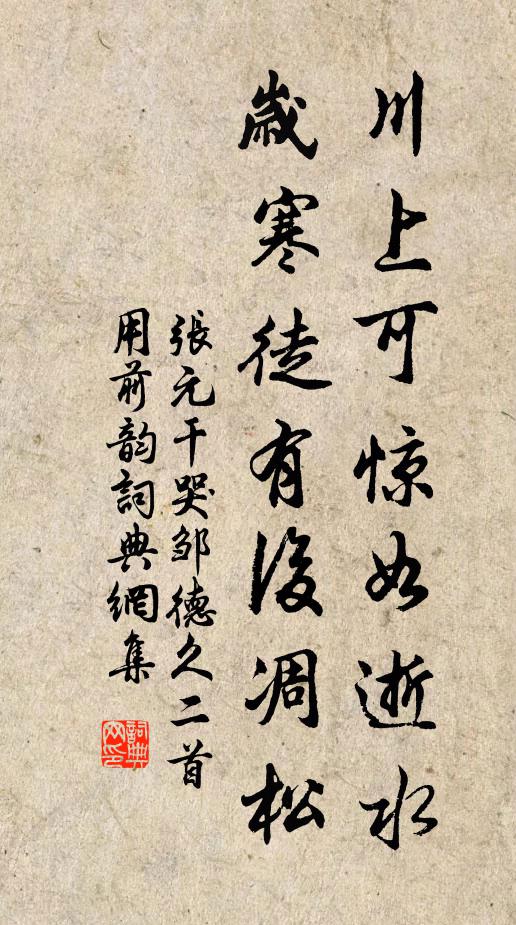 川上可惊如逝水
歲寒徒有後凋松
張元干哭邹德久二首
用前韵詞典網集
詞典网印